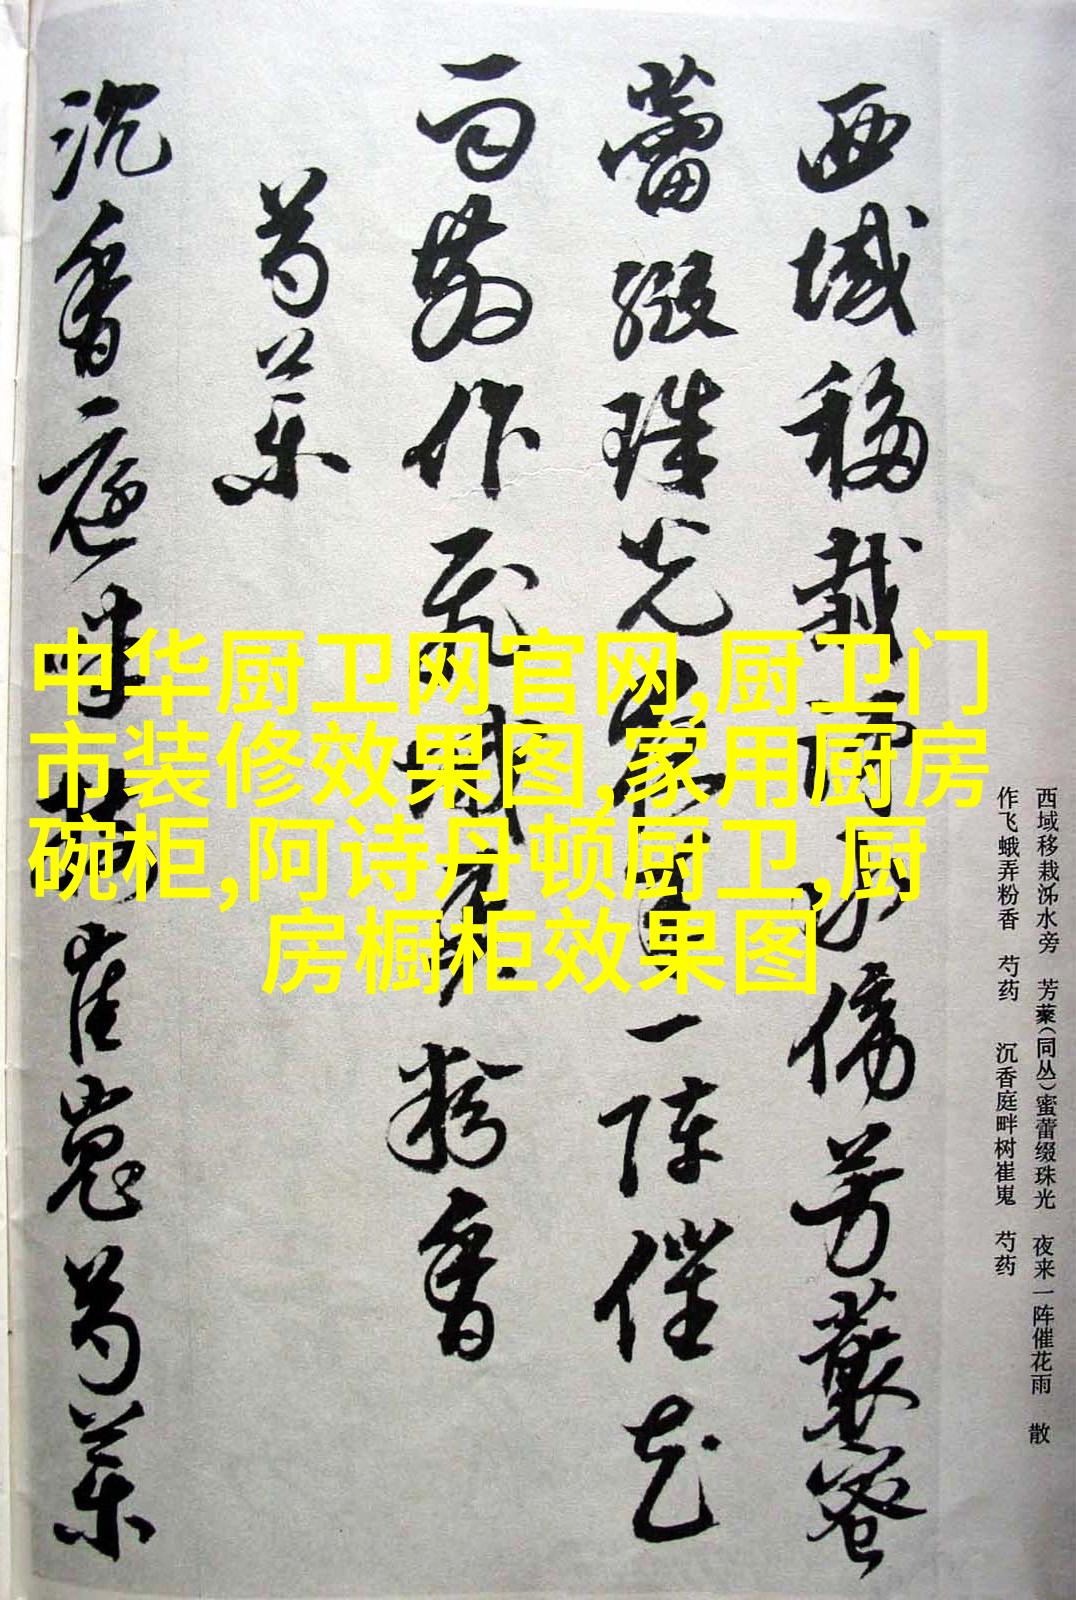 西域移栽泺水傍芳藂蜜
蕾缀珠光夜来一阵催花
雨散作飞蛾弄粉香
芍药
沉香庭畔树崔嵬芍药
西域移栽泺水旁 芳藂(同丛)蜜蕾缀珠光 夜来一阵催花雨 散
作飞蛾弄粉香 芍药 沉香庭畔树崔嵬 芍药
中华厨卫网官网,厨卫门
市装修效果图,家用厨房
碗柜,阿诗丹顿厨卫,厨
房橱柜效果图